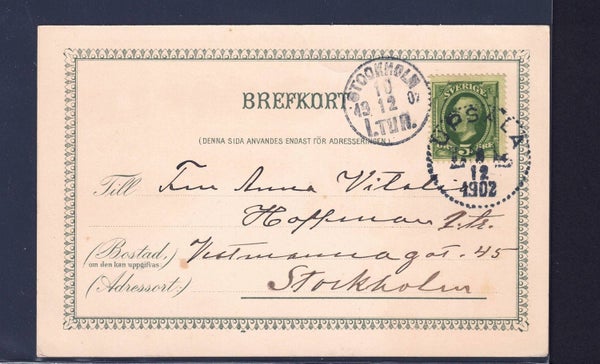 BREFKORT
(DENNA SIDA ANVÄNDES ENDAST FÖR ADRESSERINGEN.)
STOCKHOLM
10
12
1.TUR.
SVERIGE
UPSALA
12
1902
Till Fru Anna Vitalia
Hoffman
(Bostad, Vestmannagat. 45
om den kan uppgifvas
(Adressort:) Stockholm